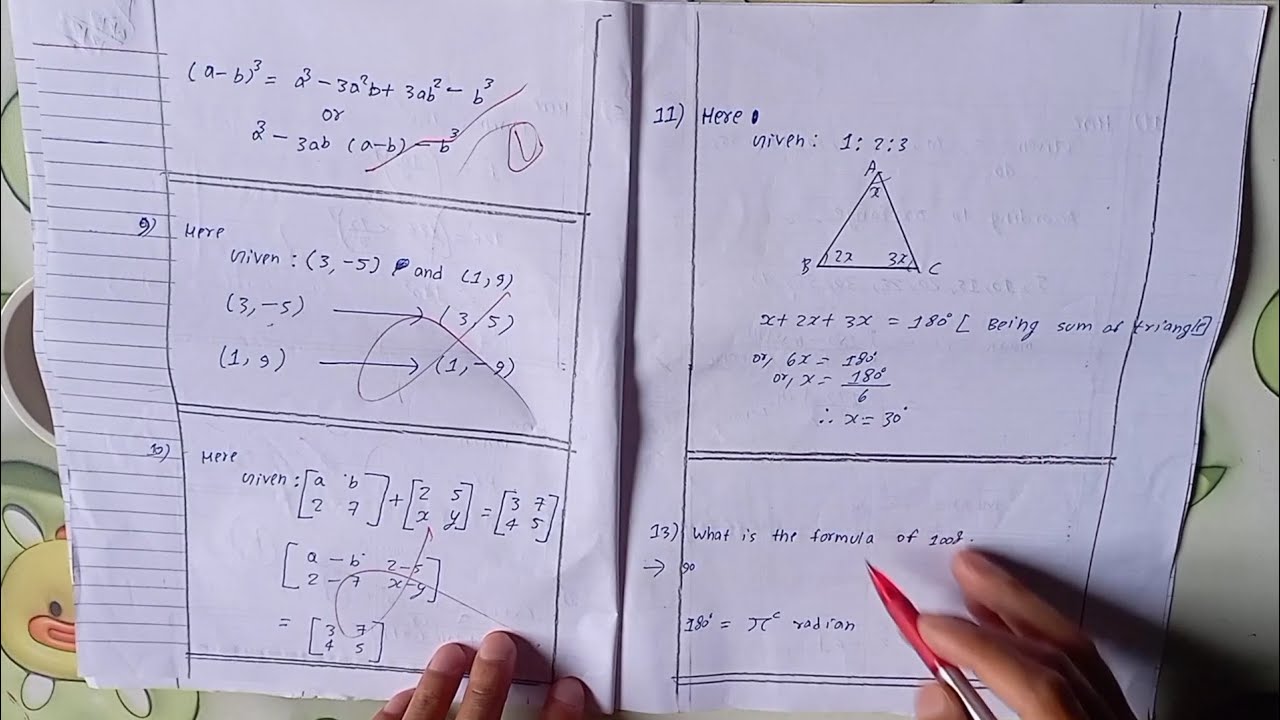 (a-b)³ = a³ - 3a²b + 3ab² - b³
or
a³ - 3ab (a-b) - b³
9) Here
Given : (3, -5) and (1, 9)
(3, -5) → (3, 5)
(1, 9) → (1, -9)
10) Here
Given : [a b
2 7] + [2 5
x y] = [3 7
4 5]
[a - b 2-5
2 - 7 x-y]
= [3 7
4 5]
11) Here
Given : 1 : 2 : 3
A
x
2x 3x
B C
x + 2x + 3x = 180° [Being sum of triangle]
or, 6x = 180°
or, x = 180°
6
∴ x = 30°
13) What is the formula of 100g.
→ 90
180° = πᶜ radian